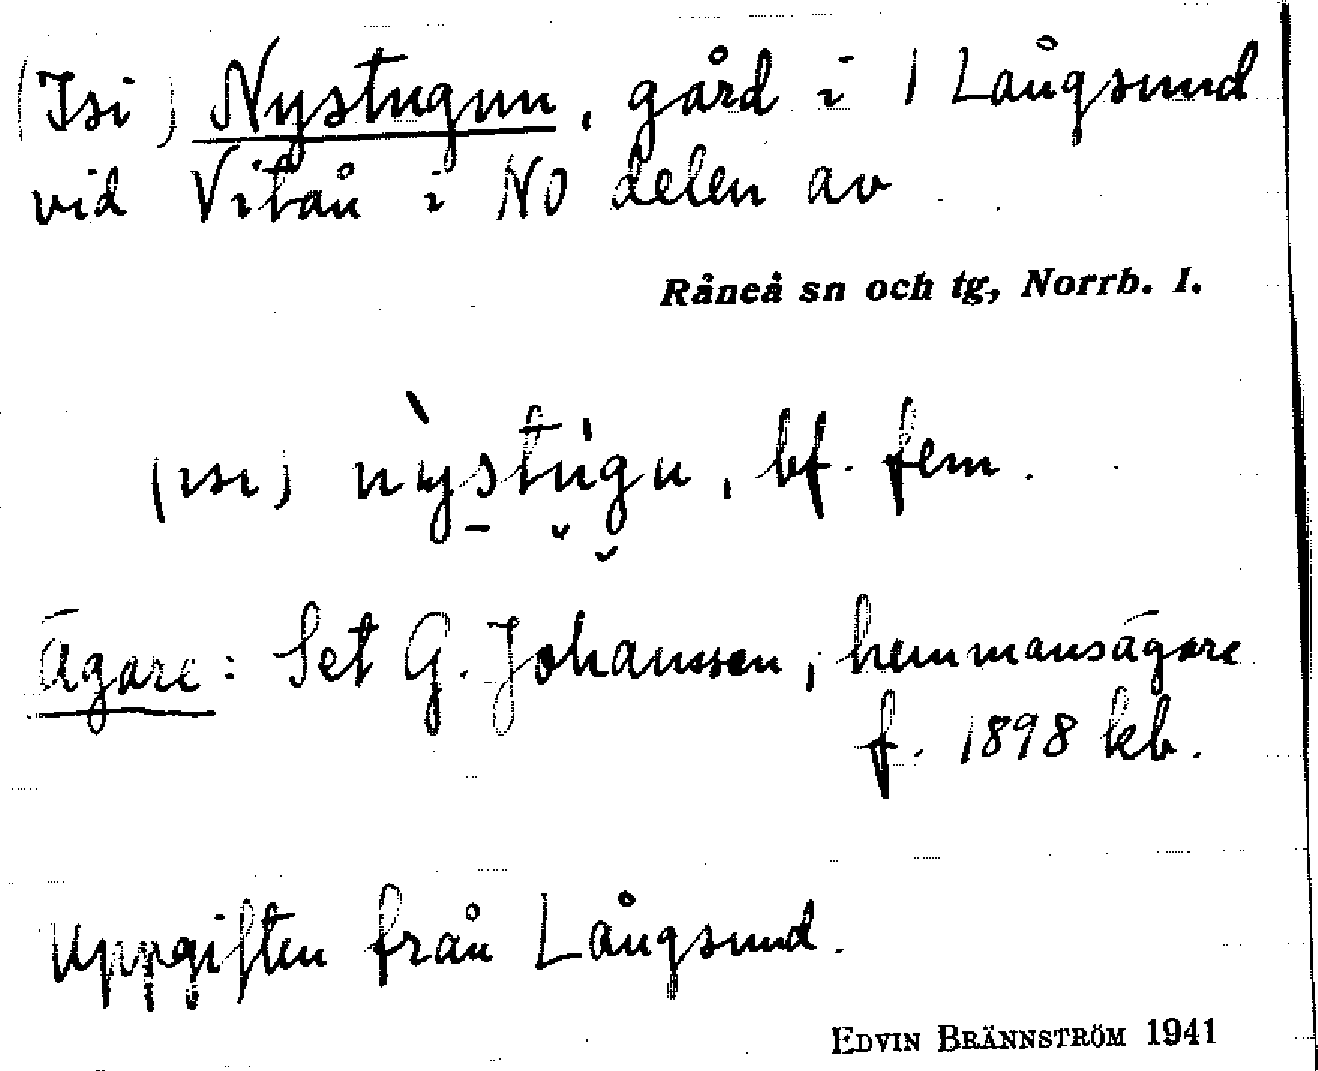 (Isi) Nystugun, gård i 1 Långsund
vid Vitån i NO delen av
Råneå sn och tg, Norrb. l.
(ɪsɪ) nỳstúgu, bf. fem.
Ägare: Set G. Johansson, hemmansägare
f. 1898 kb.
Uppgiften från Långsund.
EDVIN BRÄNNSTRÖM 1941